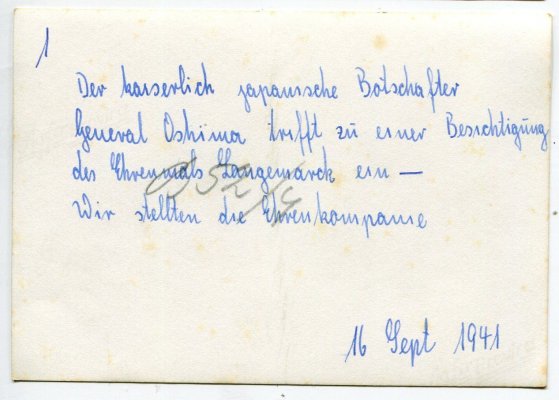 1
Der kaiserlich japanische Botschafter
General Oshima trifft zu einer Besichtigung
des Ehrenmals Langemarck ein —
Wir stellten die Ehrenkompanie
16 Sept 1941